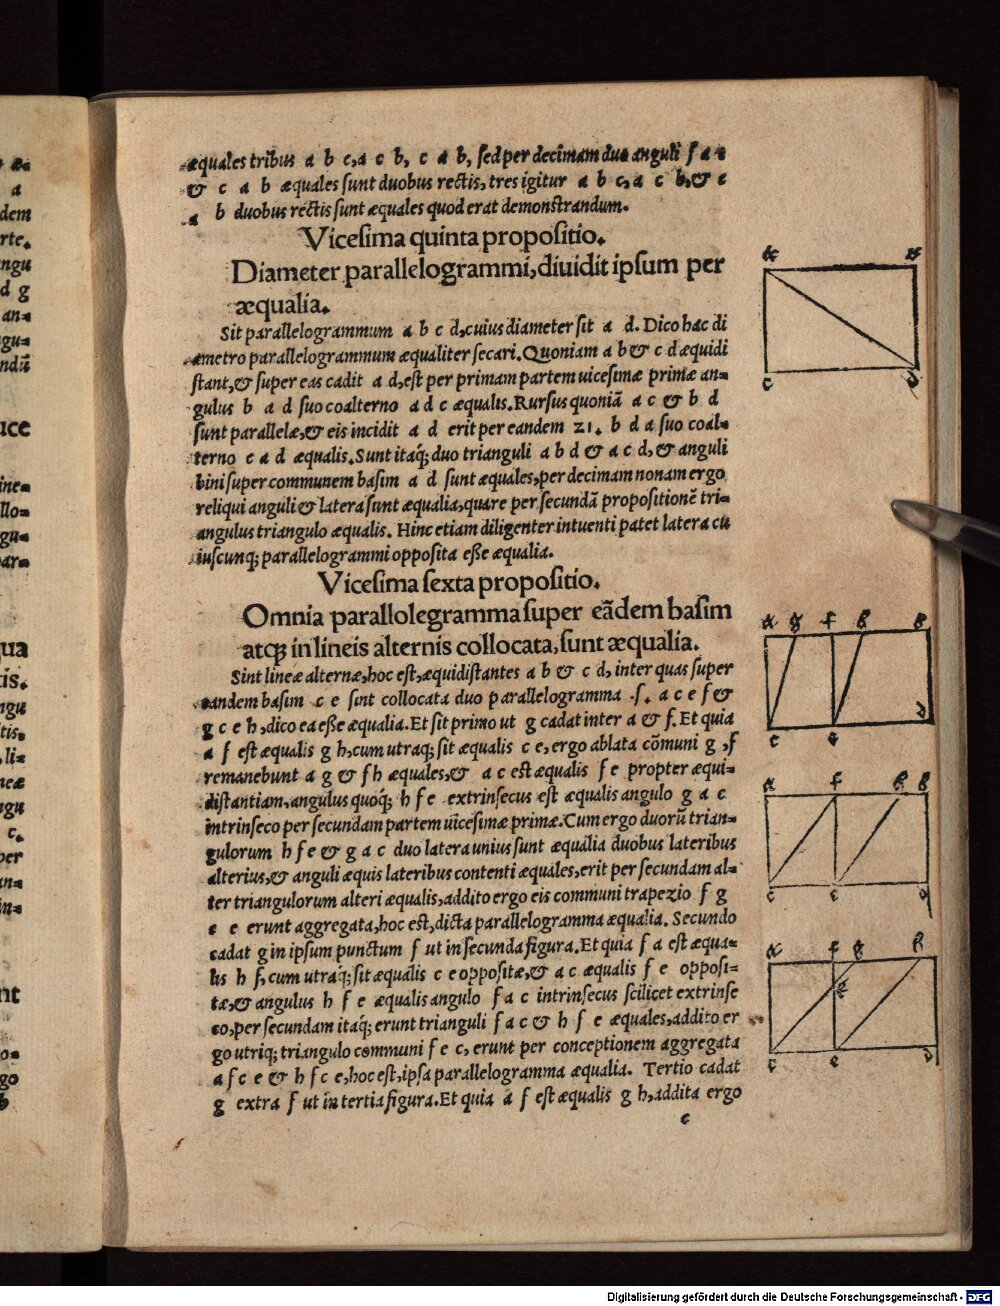 æquales tribus a b c, a c b, c a b, sed per decimam duo anguli f a
& c a b æquales sunt duobus rectis, tres igitur a b c, a c b, & c
a b duobus rectis sunt æquales quod erat demonstrandum.
Vicesima quinta propositio.
Diameter parallelogrammi, diuidit ipsum per
æqualia.
Sit parallelogrammum a b c d, cuius diameter sit a d. Dico hac di
ametro parallelogrammum æqualiter secari. Quoniam a b & c d æquidi
stant, & super eas cadit a d, est per primam partem uicesimæ primæ an-
gulus b a d suo coalterno a d c æqualis. Rursus quoniã a c & b d
sunt parallelæ, & eis incidit a d erit per eandem 21. b d a suo coal-
terno c a d æqualis. Sunt itaq; duo trianguli a b d & a c d, & anguli
bini super communem basim a d sunt æquales, per decimam nonam ergo
reliqui anguli & latera sunt æqualia, quare per secundã propositionẽ tri-
angulus triangulo æqualis. Hinc etiam diligenter intuenti patet latera cu
iuscunq; parallelogrammi opposita esse æqualia.
Vicesima sexta propositio.
Omnia parallolegramma super eãdem basim
atq; in lineis alternis collocata, sunt æqualia.
Sint lineæ alternæ, hoc est, æquidistantes a b & c d, inter quas super
eandem basim c e sint collocata duo parallelogramma .s. a c e f &
g c e h, dico ea esse æqualia. Et sit primo ut g cadat inter a & f. Et quia
a f est æqualis g h, cum utraq; sit æqualis c e, ergo ablata cõmuni g f
remanebunt a g & f h æquales, & a c est æqualis f e propter æqui-
distantiam, angulus quoq; h f e extrinsecus est æqualis angulo g a c
intrinseco per secundam partem uicesimæ primæ. Cum ergo duorũ trian-
gulorum h f e & g a c duo latera unius sunt æqualia duobus lateribus
alterius, & anguli æquis lateribus contenti æquales, erit per secundam al-
ter triangulorum alteri æqualis, addito ergo eis communi trapezio f g
c e erunt aggregata, hoc est, dicta parallelogramma æqualia. Secundo
cadat g in ipsum punctum f ut in secunda figura. Et quia f a est æqua-
lis h f, cum utraq; sit æqualis c e oppositæ, & a c æqualis f e opposi-
tæ, & angulus h f e æqualis angulo f a c intrinsecus scilicet extrinse
co, per secundam itaq; erunt trianguli f a c & h f e æquales, addito er
go utriq; triangulo communi f e c, erunt per conceptionem aggregata
a f c e & h f c e, hoc est, ipsa parallelogramma æqualia. Tertio cadat
g extra f ut in tertia figura. Et quia a f est æqualis g h, addita ergo
c
Digitalisierung gefördert durch die Deutsche Forschungsgemeinschaft - DFG